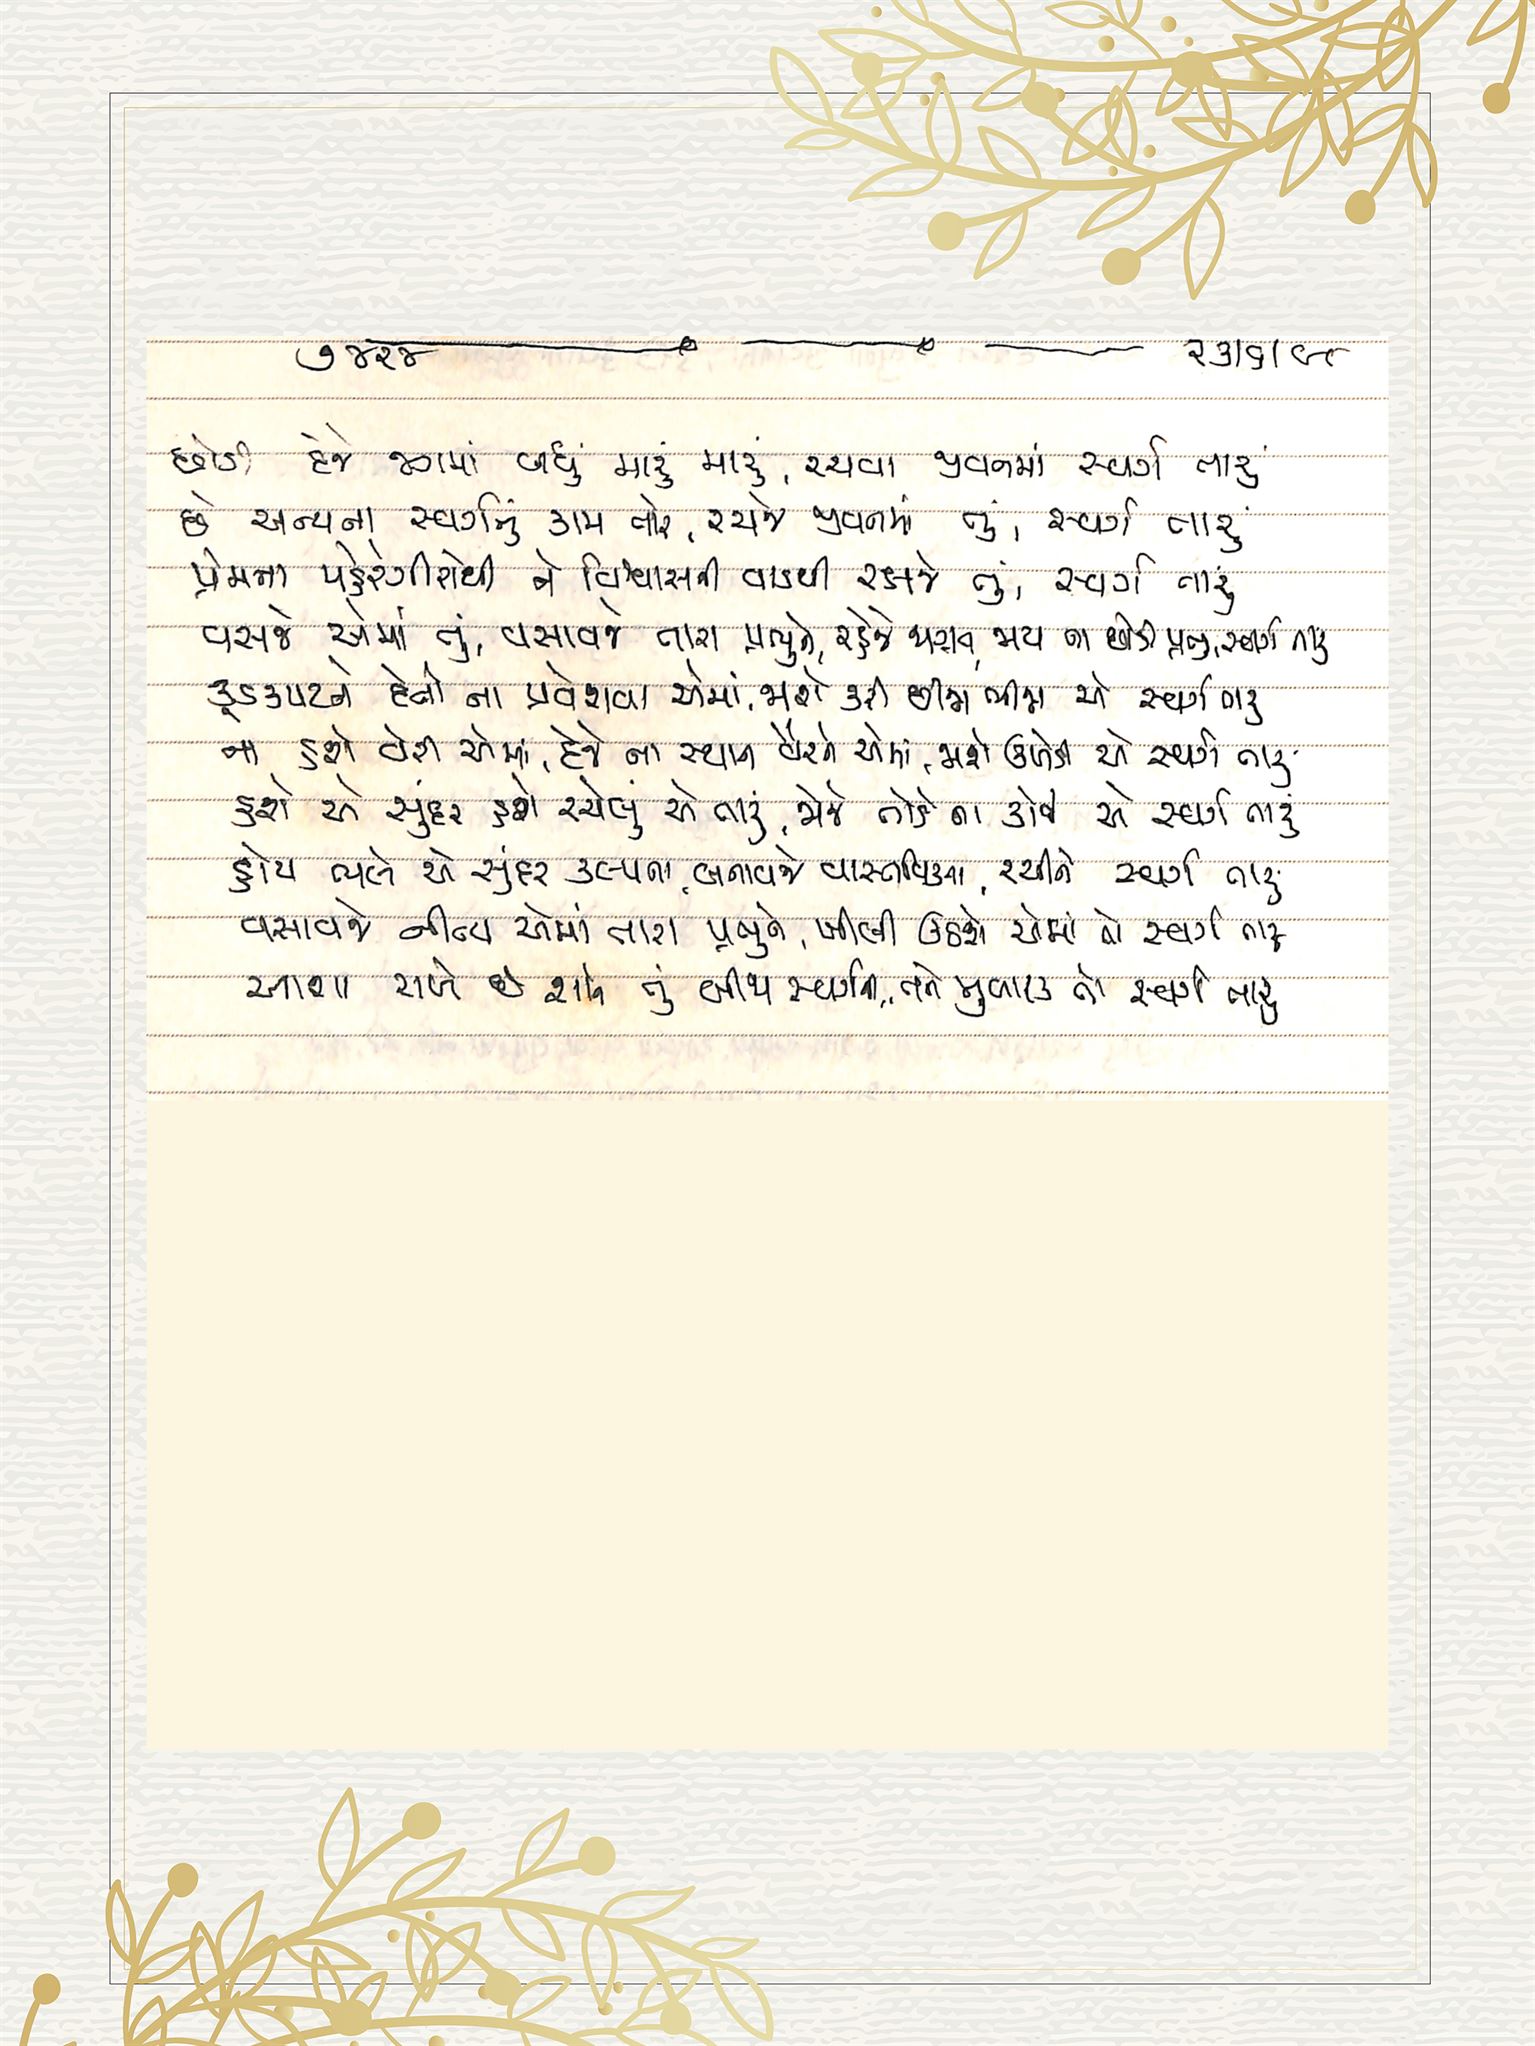 ૭૪૨૪ ૨૩/૬/૯૮
છોડી દેજે જગમાં બધું મારું મારું, રચવા જીવનમાં સ્વર્ગ તારું
છે અન્યના સ્વર્ગનું કામ તારે, રચજે જીવનમાં તું, સ્વર્ગ તારું
પ્રેમના પહેરેગીરોથી ને વિશ્વાસની વાડથી રક્ષજે તું, સ્વર્ગ તારું
વસજે એમાં તું, વસાવજે તારા પ્રભુને, રહેજે ભય ના છોડી સ્વર્ગ તારું
કૂડકપટને દેતો ના પ્રવેશવા એમાં, જાશે કરી છીન્ન ભીન્ન એ સ્વર્ગ તારું
ના હશે વેરી એમાં, દેજે ના સ્થાન વૈરને એમાં, જાશે ઉખેડી એ સ્વર્ગ તારું
હશે એ સુંદર હશે રચેલું એ તારું, જોજે તોડે ના કોઈ એ સ્વર્ગ તારું
હોય ભલે એ સુંદર કલ્પના, બનાવજે વાસ્તવિકતા, રચીને સ્વર્ગ તારું
વસાવજે નીત્ય એમાં તારા પ્રભુને, ખીલી ઉઠશે એમાં તો સ્વર્ગ તારું
આશા રાખે છે શાને તું બીજા સ્વર્ગની, તને મુબારક હો સ્વર્ગ તારું